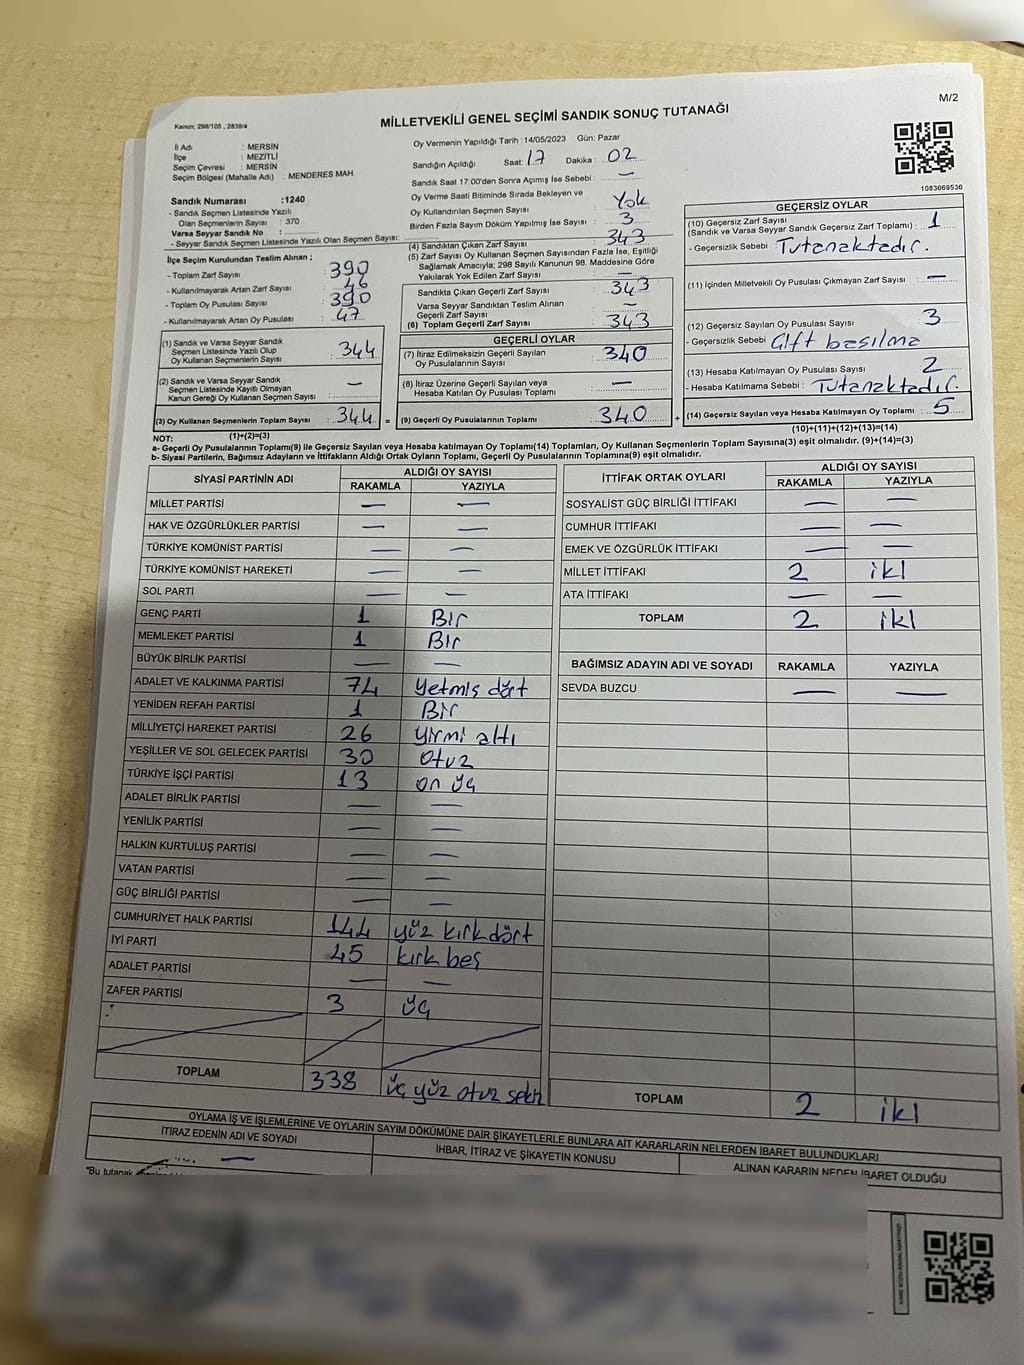 M/2
Kanun; 298/105 , 2839/4
MİLLETVEKİLİ GENEL SEÇİMİ SANDIK SONUÇ TUTANAĞI
İl Adı : MERSİN
İlçe : MEZİTLİ
Seçim Çevresi : MERSİN
Seçim Bölgesi (Mahalle Adı) : MENDERES MAH.
Sandık Numarası :1240
- Sandık Seçmen Listesinde Yazılı
Olan Seçmenlerin Sayısı : 370
Varsa Seyyar Sandık No :
- Seyyar Sandık Seçmen Listesinde Yazılı Olan Seçmen Sayısı:
İlçe Seçim Kurulundan Teslim Alınan ;
- Toplam Zarf Sayısı : 390
- Kullanılmayarak Artan Zarf Sayısı : 46
- Toplam Oy Pusulası Sayısı : 390
- Kullanılmayarak Artan Oy Pusulası : 47
(1) Sandık ve Varsa Seyyar Sandık
Seçmen Listesinde Yazılı Olup
Oy Kullanan Seçmenlerin Sayısı : 344
(2) Sandık ve Varsa Seyyar Sandık
Seçmen Listesinde Kayıtlı Olmayan
Kanun Gereği Oy Kullanan Seçmen Sayısı : —
(3) Oy Kullanan Seçmenlerin Toplam Sayısı : 344 =
(1)+(2)=(3)
Oy Vermenin Yapıldığı Tarih :14/05/2023 Gün: Pazar
Sandığın Açıldığı Saat: 17 Dakika : 02
Sandık Saat 17:00'den Sonra Açımış İse Sebebi : —
Oy Verme Saati Bitiminde Sırada Bekleyen ve
Oy Kullandırılan Seçmen Sayısı : Yok
Birden Fazla Sayım Döküm Yapılmış İse Sayısı : 3
(4) Sandıktan Çıkan Zarf Sayısı : 343
(5) Zarf Sayısı Oy Kullanan Seçmen Sayısından Fazla İse, Eşitliği
Sağlamak Amacıyla; 298 Sayılı Kanunun 98. Maddesine Göre
Yakılarak Yok Edilen Zarf Sayısı : —
Sandıkta Çıkan Geçerli Zarf Sayısı : 343
Varsa Seyyar Sandıktan Teslim Alınan
Geçerli Zarf Sayısı : —
(6) Toplam Geçerli Zarf Sayısı : 343
GEÇERLİ OYLAR
(7) İtiraz Edilmeksizin Geçerli Sayılan
Oy Pusulalarının Toplamı : 340
(8) İtiraz Üzerine Geçerli Sayılan veya
Hesaba Katılan Oy Pusulası Toplamı : —
(9) Geçerli Oy Pusulalarının Toplamı : 340 +
1083669536
GEÇERSİZ OYLAR
(10) Geçersiz Zarf Sayısı
(Sandık ve Varsa Seyyar Sandık Geçersiz Zarf Toplamı) : 1
- Geçersizlik Sebebi : Tutanaktadır.
(11) İçinden Milletvekili Oy Pusulası Çıkmayan Zarf Sayısı : —
(12) Geçersiz Sayılan Oy Pusulası Sayısı : 3
- Geçersizlik Sebebi : Çift basılma
(13) Hesaba Katılmayan Oy Pusulası Sayısı : 2
- Hesaba Katılmama Sebebi : Tutanaktadır.
(14) Geçersiz Sayılan veya Hesaba Katılmayan Oy Toplamı : 5
(10)+(11)+(12)+(13)=(14)
NOT:
a- Geçerli Oy Pusulalarının Toplamı(9) ile Geçersiz Sayılan veya Hesaba katılmayan Oy Toplamı(14) Toplamları, Oy Kullanan Seçmenlerin Toplam Sayısına(3) eşit olmalıdır. (9)+(14)=(3)
b- Siyasi Partilerin, Bağımsız Adayların ve İttifakların Aldığı Ortak Oyların Toplamı, Geçerli Oy Pusulalarının Toplamına(9) eşit olmalıdır.
SİYASİ PARTİNİN ADI ALDIĞI OY SAYISI
RAKAMLA YAZIYLA
MİLLET PARTİSİ — —
HAK VE ÖZGÜRLÜKLER PARTİSİ — —
TÜRKİYE KOMÜNİST PARTİSİ — —
TÜRKİYE KOMÜNİST HAREKETİ — —
SOL PARTİ — —
GENÇ PARTİ 1 Bir
MEMLEKET PARTİSİ 1 Bir
BÜYÜK BİRLİK PARTİSİ — —
ADALET VE KALKINMA PARTİSİ 74 Yetmiş dört
YENİDEN REFAH PARTİSİ 1 Bir
MİLLİYETÇİ HAREKET PARTİSİ 26 Yirmi altı
YEŞİLLER VE SOL GELECEK PARTİSİ 30 Otuz
TÜRKİYE İŞÇİ PARTİSİ 13 on üç
ADALET BİRLİK PARTİSİ — —
YENİLİK PARTİSİ — —
HALKIN KURTULUŞ PARTİSİ — —
VATAN PARTİSİ — —
GÜÇ BİRLİĞİ PARTİSİ — —
CUMHURİYET HALK PARTİSİ 144 yüz kırk dört
İYİ PARTİ 45 kırk beş
ADALET PARTİSİ — —
ZAFER PARTİSİ 3 üç
TOPLAM 338 üç yüz otuz sekiz
İTTİFAK ORTAK OYLARI ALDIĞI OY SAYISI
RAKAMLA YAZIYLA
SOSYALİST GÜÇ BİRLİĞİ İTTİFAKI — —
CUMHUR İTTİFAKI — —
EMEK VE ÖZGÜRLÜK İTTİFAKI — —
MİLLET İTTİFAKI 2 iki
ATA İTTİFAKI — —
TOPLAM 2 iki
BAĞIMSIZ ADAYIN ADI VE SOYADI RAKAMLA YAZIYLA
SEVDA BUZCU — —
TOPLAM 2 iki
OYLAMA İŞ VE İŞLEMLERİNE VE OYLARIN SAYIM DÖKÜMÜNE DAİR ŞİKAYETLERLE BUNLARA AİT KARARLARIN NELERDEN İBARET BULUNDUKLARI
İTİRAZ EDENİN ADI VE SOYADI İHBAR, İTİRAZ VE ŞİKAYETİN KONUSU ALINAN KARARIN NEDEN İBARET OLDUĞU
—
*Bu tutanak